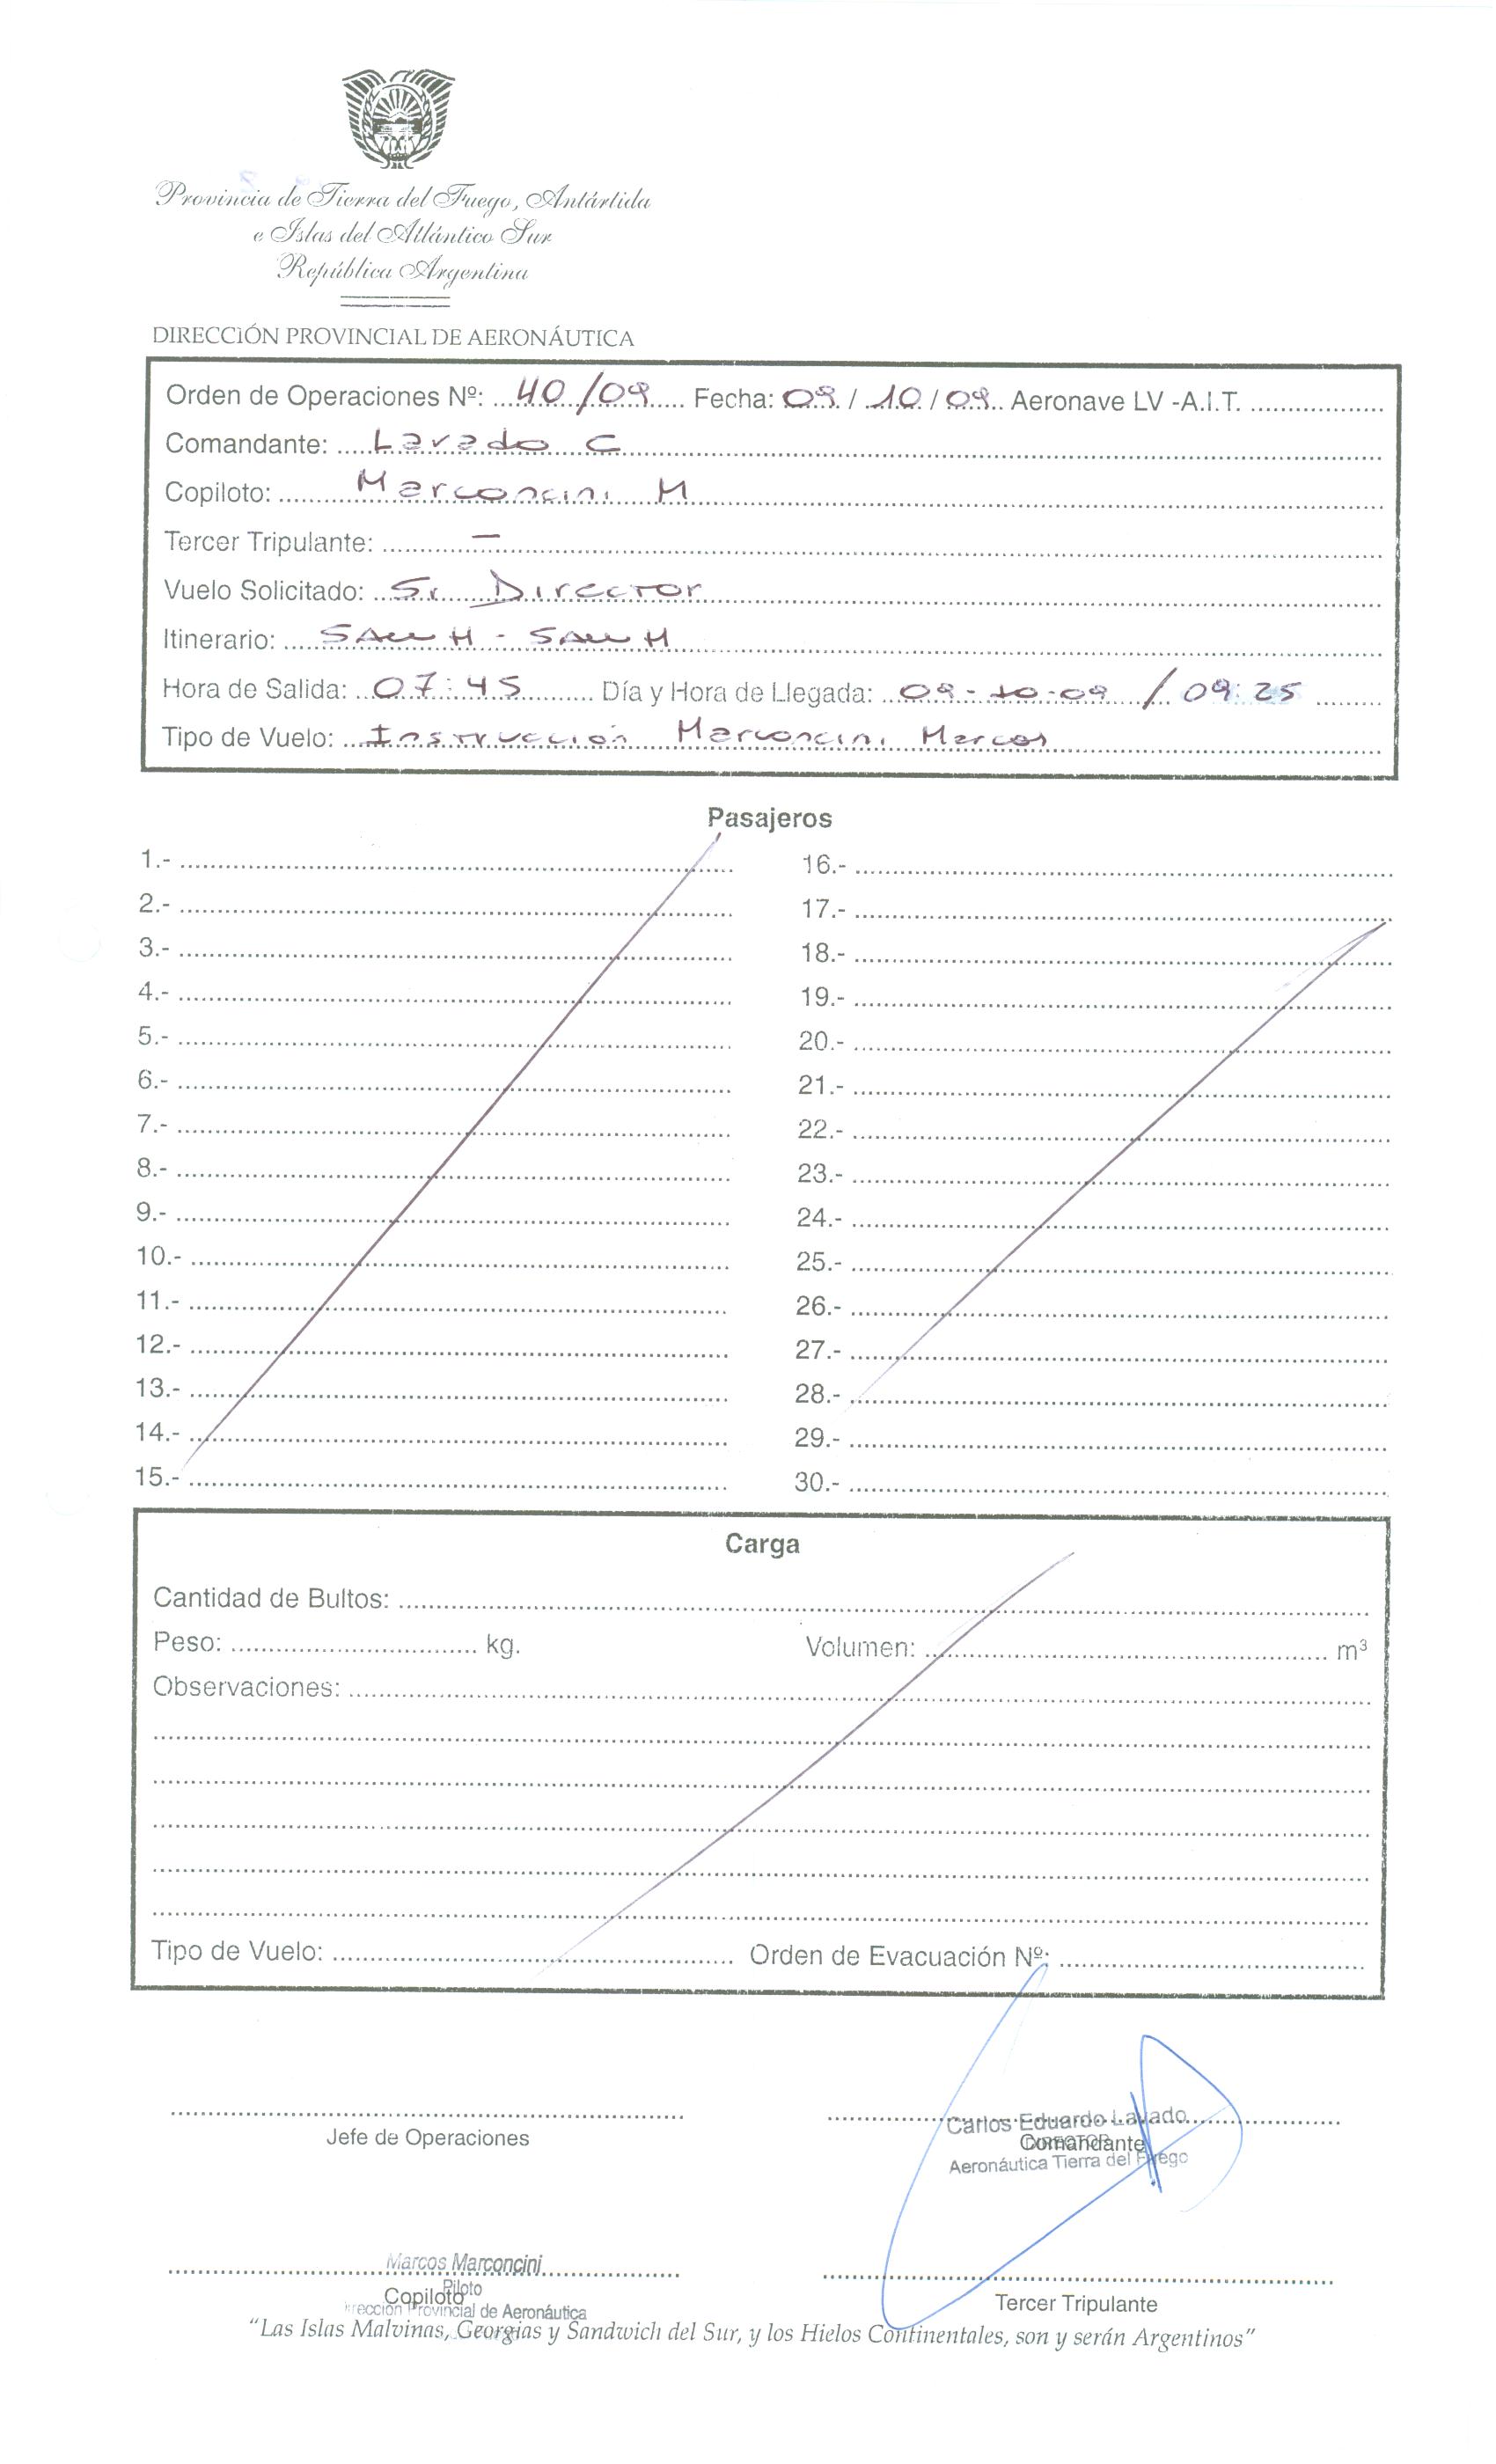 Provincia de Tierra del Fuego, Antártida
e Islas del Atlántico Sur
República Argentina
DIRECCIÓN PROVINCIAL DE AERONÁUTICA
Orden de Operaciones Nº: 40/09 Fecha: 09 / 10 / 09 Aeronave LV -A.I.T.
Comandante: Lavado C
Copiloto: Marconcini M
Tercer Tripulante: –
Vuelo Solicitado: Sr Director
Itinerario: SAWH - SAWH
Hora de Salida: 07:45 Día y Hora de Llegada: 09-10-09 / 09:25
Tipo de Vuelo: Instrucción Marconcini Marcos
Pasajeros
1.- 16.-
2.- 17.-
3.- 18.-
4.- 19.-
5.- 20.-
6.- 21.-
7.- 22.-
8.- 23.-
9.- 24.-
10.- 25.-
11.- 26.-
12.- 27.-
13.- 28.-
14.- 29.-
15.- 30.-
Carga
Cantidad de Bultos:
Peso: kg. Volumen: m³
Observaciones:
Tipo de Vuelo: Orden de Evacuación Nº:
Carlos Eduardo Lavado
Jefe de Operaciones Comandante
DIRECTOR
Aeronáutica Tierra del Fuego
Marcos Marconcini
Piloto
Copiloto Tercer Tripulante
Provincial de Aeronáutica
“Las Islas Malvinas, Georgias y Sandwich del Sur, y los Hielos Continentales, son y serán Argentinos”